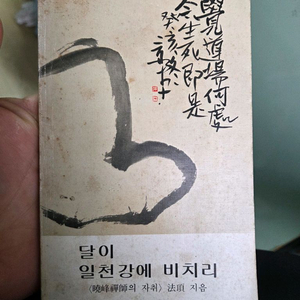 覺道場何處
今生死即是
癸亥冬
달이
일천강에 비치리
〈曉峰禪師의 자취〉 法頂 지음